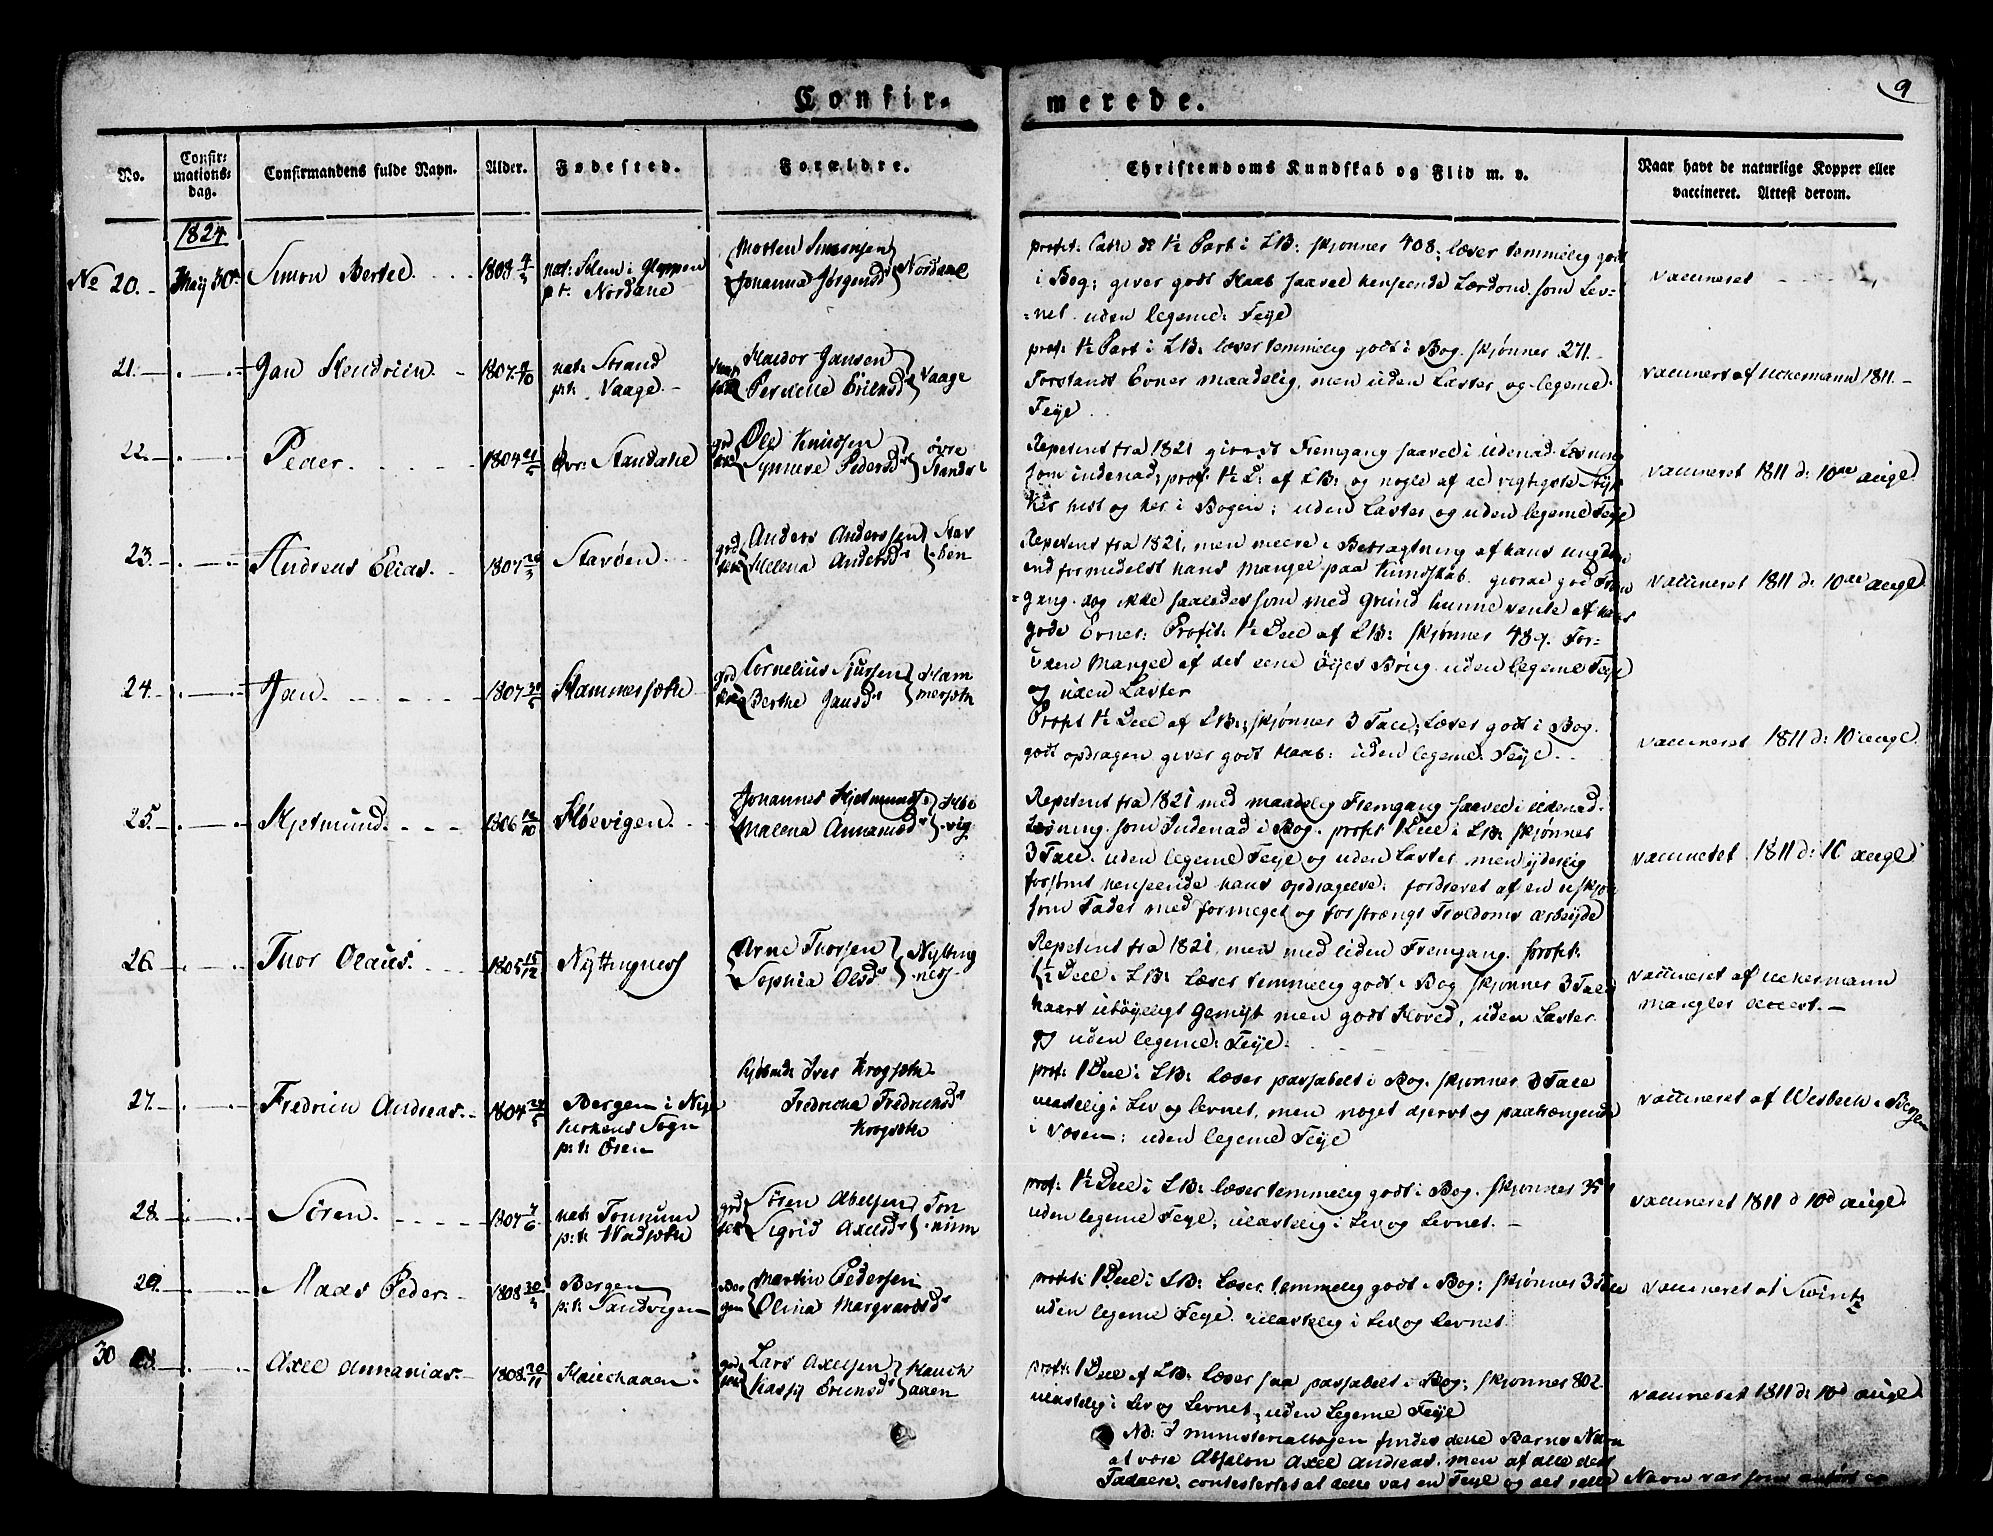 Confir-
merede.
9
No.
Confir-
mations-
dag.
Confirmandens fulde Navn.
Alder.
Fødested.
Forældre.
Christendoms Kundskab og Flid m. v.
Naar havt de naturlige Kopper eller
vaccineret. Attest derom.
1824
No 20. May 30. Simon Bertel. 1808 4/3
nat: i Gloppen
p.t. Nordane
Morten Simonsen
Johanna Jørgensd
Nordane
profit: 1½ Part i LB: skjønner 408; læser temmelig godt
i Bog; giver godt Haab saavel henseende Lærdom som Lev-
net. uden legeme: Feyl
vaccineret
21. Jan Hendrich. 1807
nat: Strand
p.t. Vaage.
Haldor Jansen
Eriksd
Vaage
prof: 1½ Part i LB: læser temmelig godt i Bog. skjønner 271.
Forstands Evner maadelig, men uden Laster og legeme
Feyl
vaccinert af Uckermann 1811.
22. Peder. 1804
øvr: Standahl
Ole Knudsen
Synneve Pedersd
øvre
Repetent fra 1821 giort Fremgang saavel i udenad-Læsning
som indenad; prof. 1½ D: af LB: og nogle af de vigtigste Styk
ker hist og her i Bogen; uden Laster og uden legeme Feyl
vaccineret 1811 d: 10de aug
23. Andreas Elias. 1807
Stavøen
Anders Anderssen
Helena Andersd
Stav
øen
Repetent fra 1821, men meere i Betragtning af hans ungdom
end formedelst hans Mangel paa Kundskab. giorde god Frem
gang dog ikke saaledes som med Grund kunne vente af hans
gode Evner. Profit: 1½ Deel af LB: skjønner 489. For-
uden Mangel af det eene Øyes Brug uden legeme Feyl
og uden Laster
vaccineret 1811 d: 10de aug
24. Jan. 1807
Hammersæth
Cornelius Sjursen
Berthe Jansd
Ham
mersæth
Profit 1½ Deel af LB:, skjønner 3 Tall, Læser godt i Bog.
godt opdragen giver godt Haab: uden legeme Feyl.
vaccineret 1811 d: 10 aug
25. Kjetmund. 1806 12/10
Høevigen.
Johannes Kjetmunds
Malena Annaniasd
vig.
Repetent fra 1821 med maadelig Fremgang saavel i udenad-
Læsning som Indenad i Bog. profit 1 Deel i LB: skjønner
3 Tall. uden legeme Feyl og uden Laster. men yderlig
forsømt henseende hans opdragelse; fordærvet af en uskjøn
som Fader med formeget og forstrængt Trældoms arbeyde
vaccineret 1811 d: 10 aug
26. Thor Olaus. 1805 15/12
Nyttingnes
Arne Thorsen
Sophia Olsd
Nytting
nes
Repetent fra 1821, men med liden Fremgang. profit:
1½ Deel i LB: læser temmelig godt i Bog skjønner 3 Tall
haart ubøyeligt Gemyt men godt Hoved, uden Laster
og uden legeme Feyl.
vaccineret af Uckermann
mangler
27. Fredrich Andreas. 1804
Bergen i Nye
kirkens Sogn
p:t: Osen
Iver Krogsæth
Fredricha Fredrichsd
Krogsæth
prof: 1 Deel i LB: læser passabelt i Bog, skjønner 3 Tall
ulastelig i Liv og levnet, men noget djervt og paatrængende
i Væsen; uden legeme Feyl
vaccineret af Wesbech i Bergen
28. Søren. 1807 7/6
nat: Tonnum
p:t:
Søren Abelsen
Sigrid Axelsd
Ton
num
prof: 1½ Deel i LB: læser temmelig godt i Bog. skjønner 351
uden legeme Feyl, ulastelig i Liv og Levnet.
vaccineret 1811 d 10d aug
29. Mads Peder. 1808
Bergen
p:t: Sandvigen
Ber
gen
Martin Pedersen
Olina Margvardsd
profit: 1 Deel i LB: Læser temmelig godt i Bog: skjønner 3 Tall
uden legeme Feyl. ulastelig i Liv og Levnet.
vaccineret af
30 Axel Annanias. 1808 20/11
Lars Axelsen
Ericksd
Hauch
aaen
profit: 1 Deel af LB: læser saa passabelt i Bog; skjønner 802
ulastelig i Liv og Levnet, uden Legeme Feyl
vaccineret 1811 d: 10d aug
NB: I ministerialbogen findes dette Barns Navn
at være Absalon Axel Andreas, men af alle dets
Faddere contesteertes at dette var en Feyl og det rette Navn var som anført er